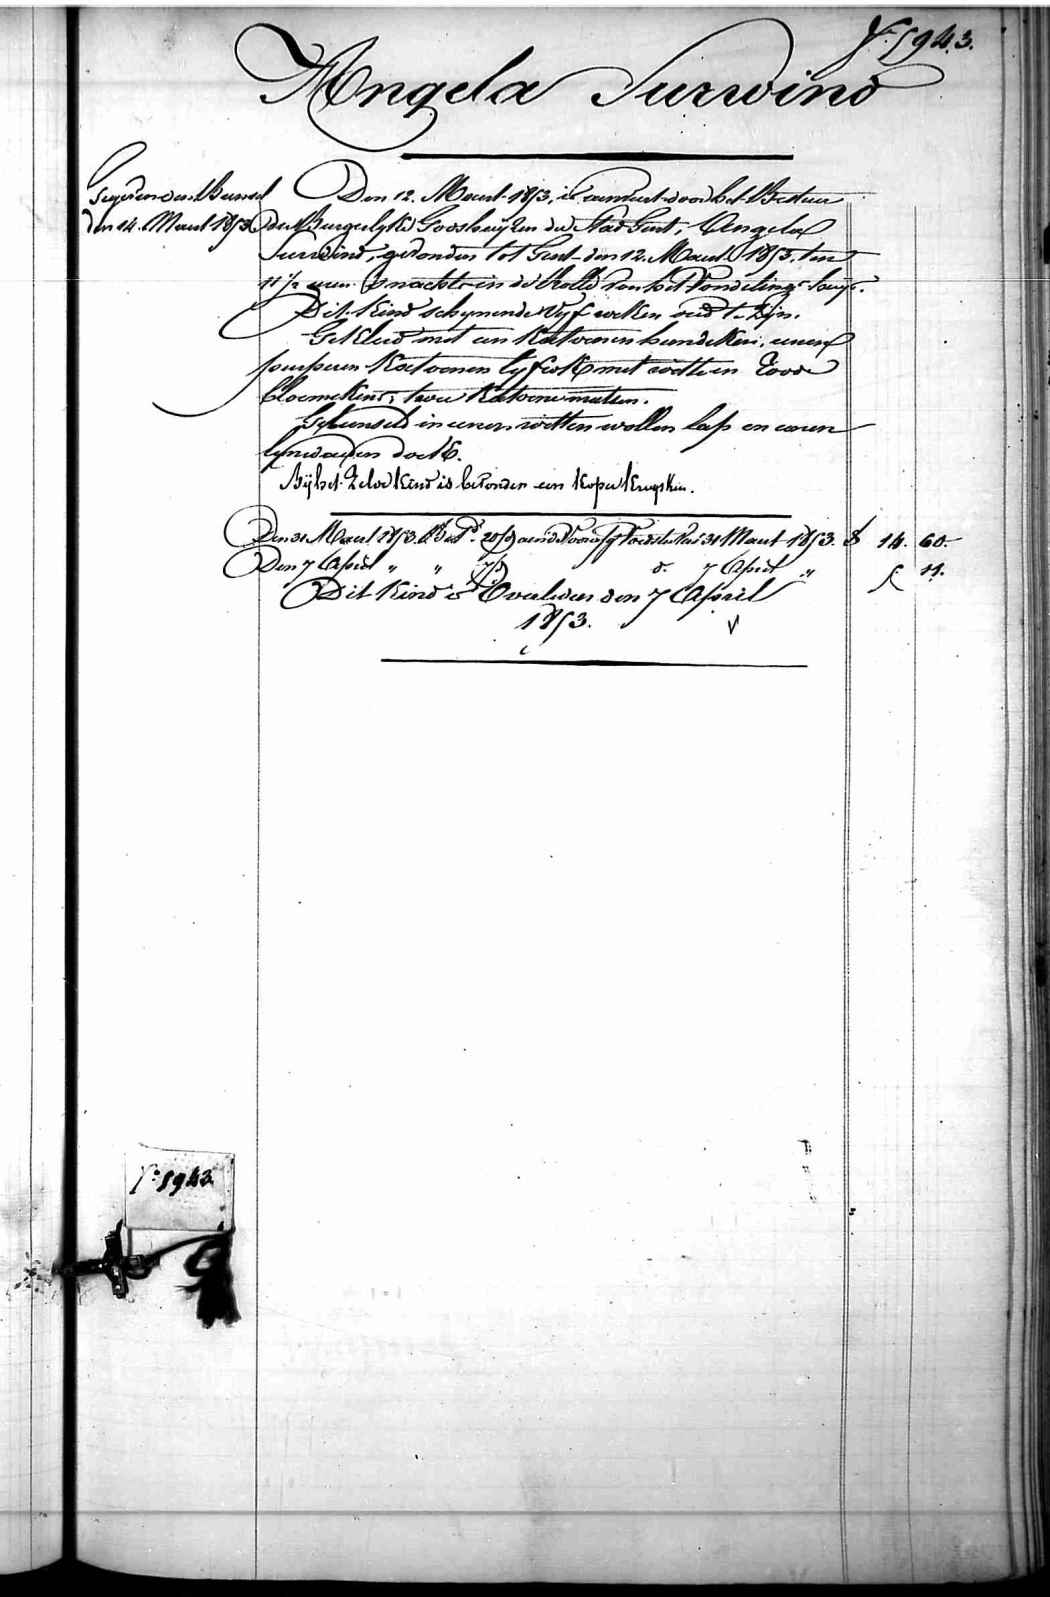 N.° 5943.
Angela Surwind
den 14. Maart 1853
Den 12. Maart 1853, is aenveert door het Bestuur
der Burgerlyke Godshuyzen der Stad Gent, Angela
Surwind, gevonden tot Gent den 12. Maart 1853. ten
11 1/2 uren 's nachts in de Rolle van het Vondelings huys.
Dit Kind schynende Vyf weken oud te Zyn.
Gekleed met een Katoenen hemdeken, eenen
purperen Katoenen lyfrok met witte en Roode
bloemekens, twee Katoene mutsen.
in eenen witten wollen lap en eenen
lynwaeden doek.
By het Zelve Kind is bevonden een Koper Kruysken.
Den 31 Maart 1853. 31 Maart 1853. 14. 60.
Den 7 April " " d.° 7 April " 11.
Dit Kind is Overleden den 7 April
1853.
N.° 5943